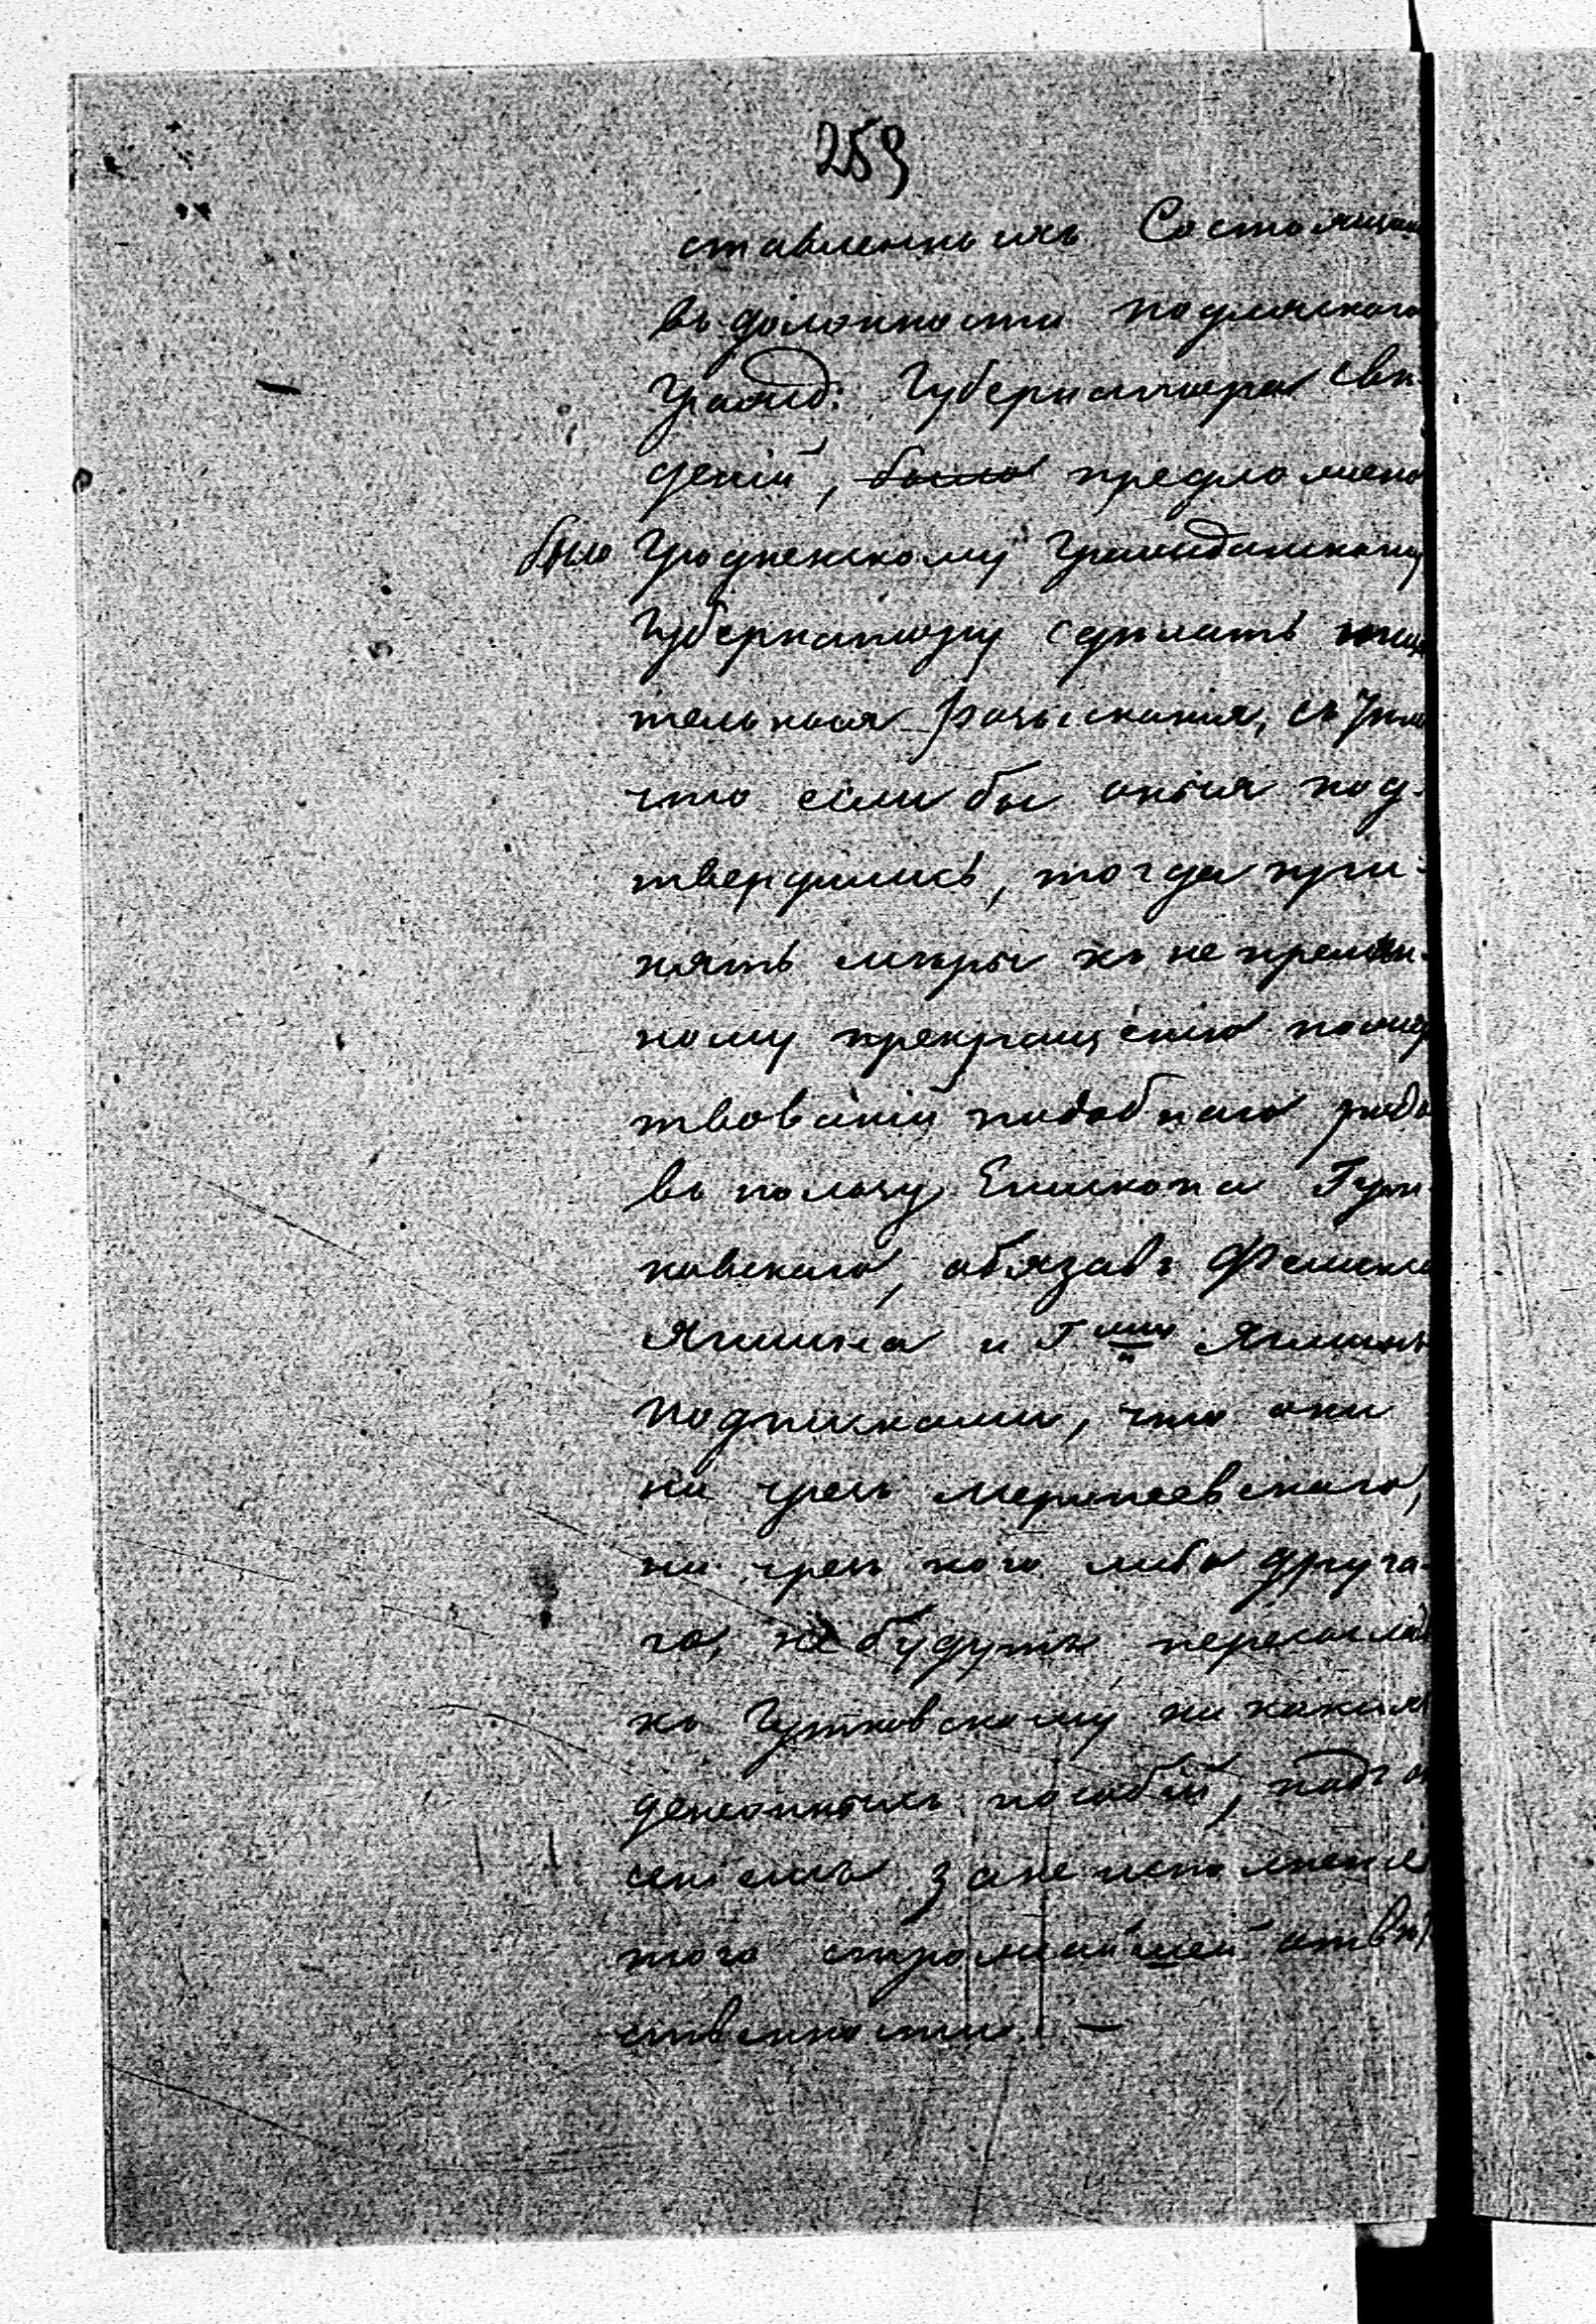 259
ставленныхъ Состоящимъ
въ должности подляскаго
Гражд: Губернатора свѣ-
деній, было предложено
было Гродненскому Гражданскому
Губернатору сдѣлать
тельныя разысканія, съ тѣмъ
что если бы оныя под-
твердились, тогда при-
нять мѣры къ не премѣн-
ному прекращенію пожер
твованій подобнаго рода
въ пользу Епископа Гут-
ковскаго, обязавъ
и Г
подписками, что они
ни чрезъ
ни чрезъ кого либо друга-
го, не будутъ пересылать
къ Гутковскому ни какихъ
денежныхъ пособій, подъ о
сеніемъ за неисполненіе
того строжайшей отвѣт
ственности. —